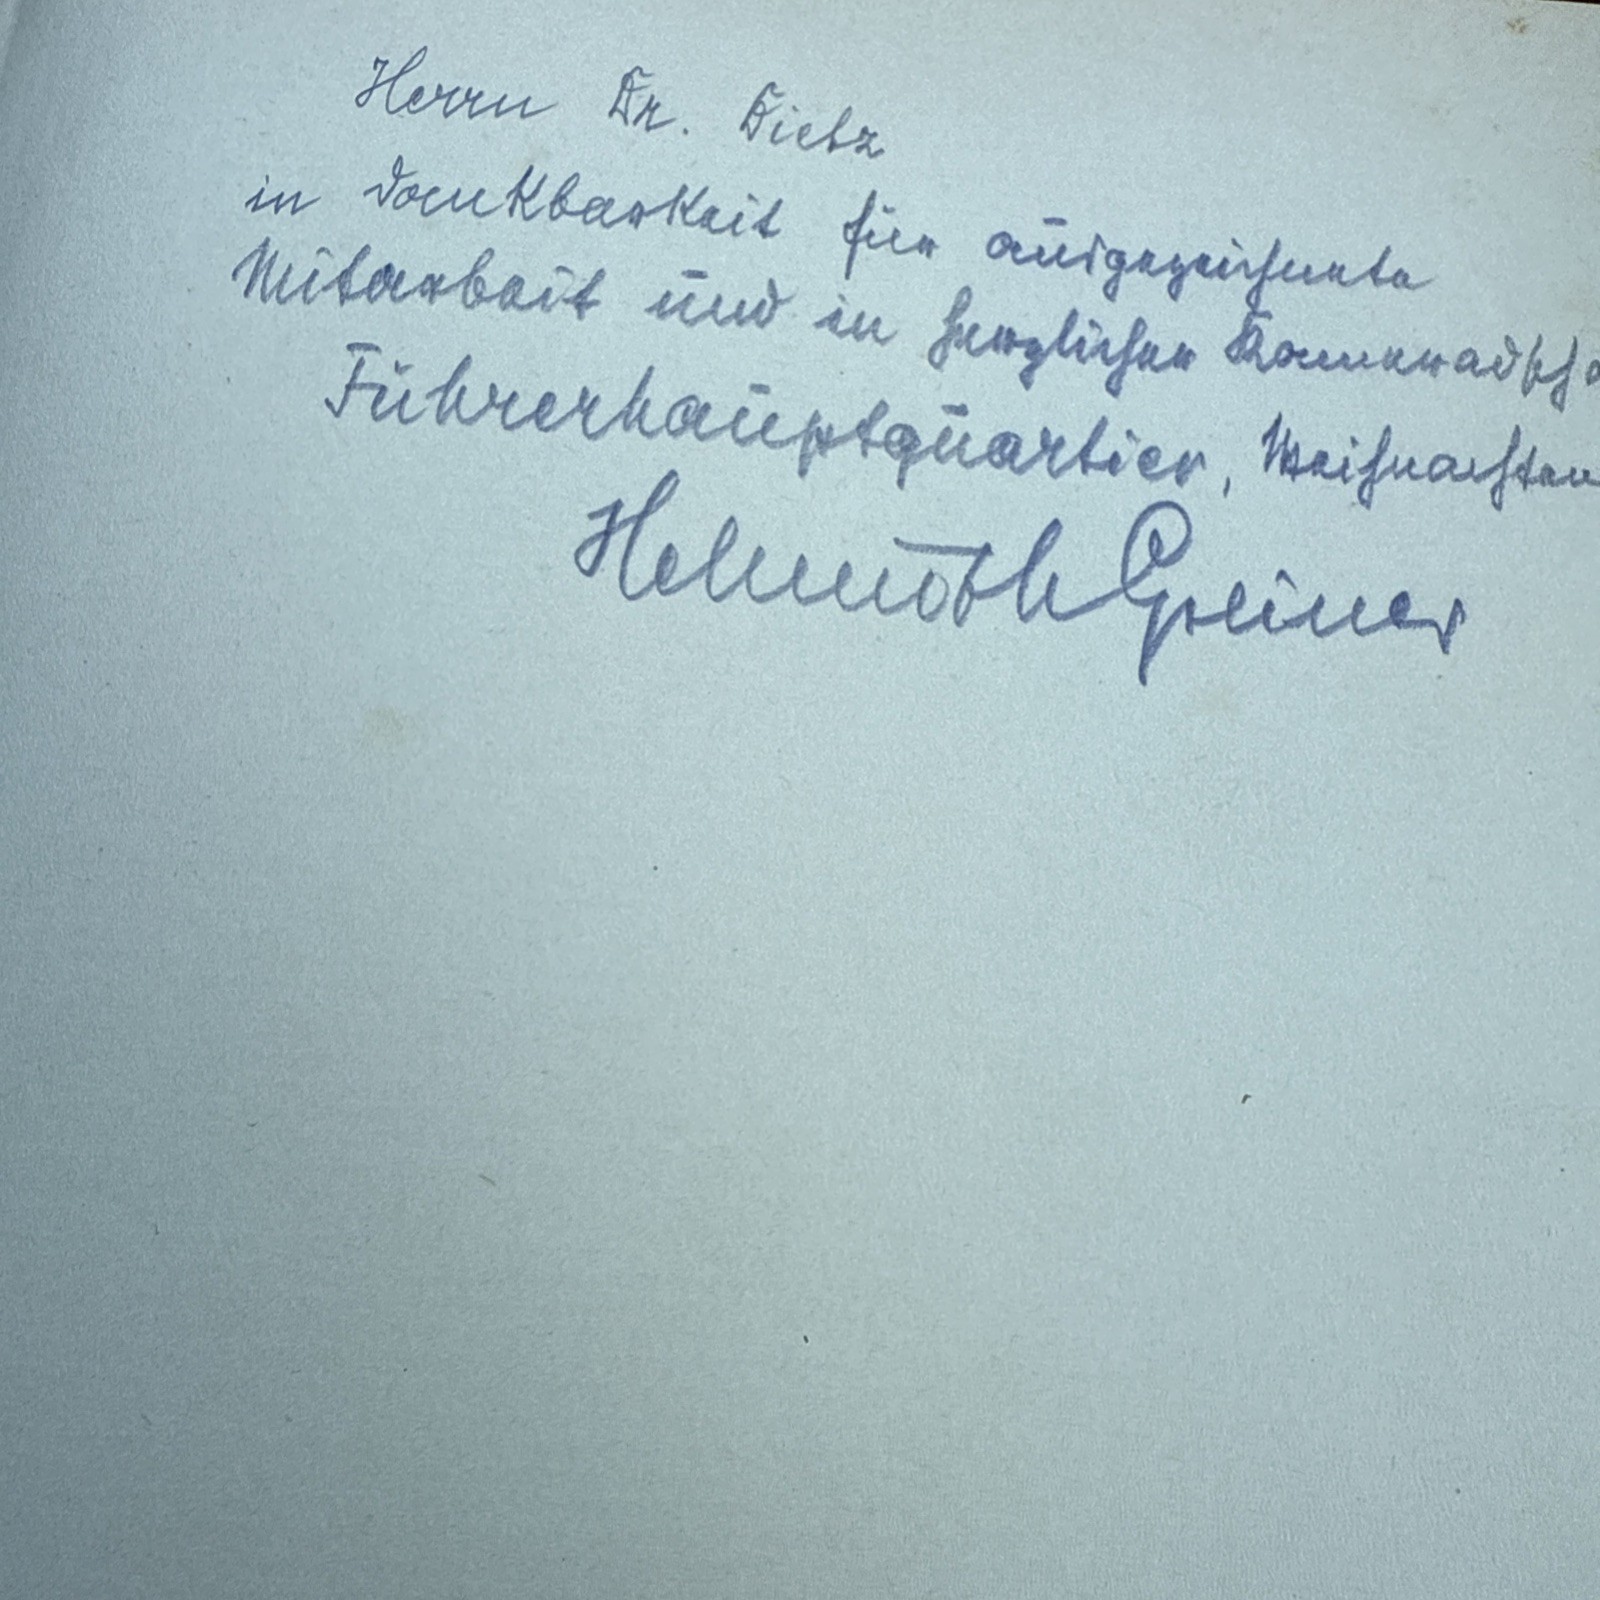 Herrn Dr. Dietz
in Dankbarkeit für ausgezeichnete
Mitarbeit und in herzlicher Kameradscha
Führerhauptquartier, Weihnachten
Helmuth Greiner